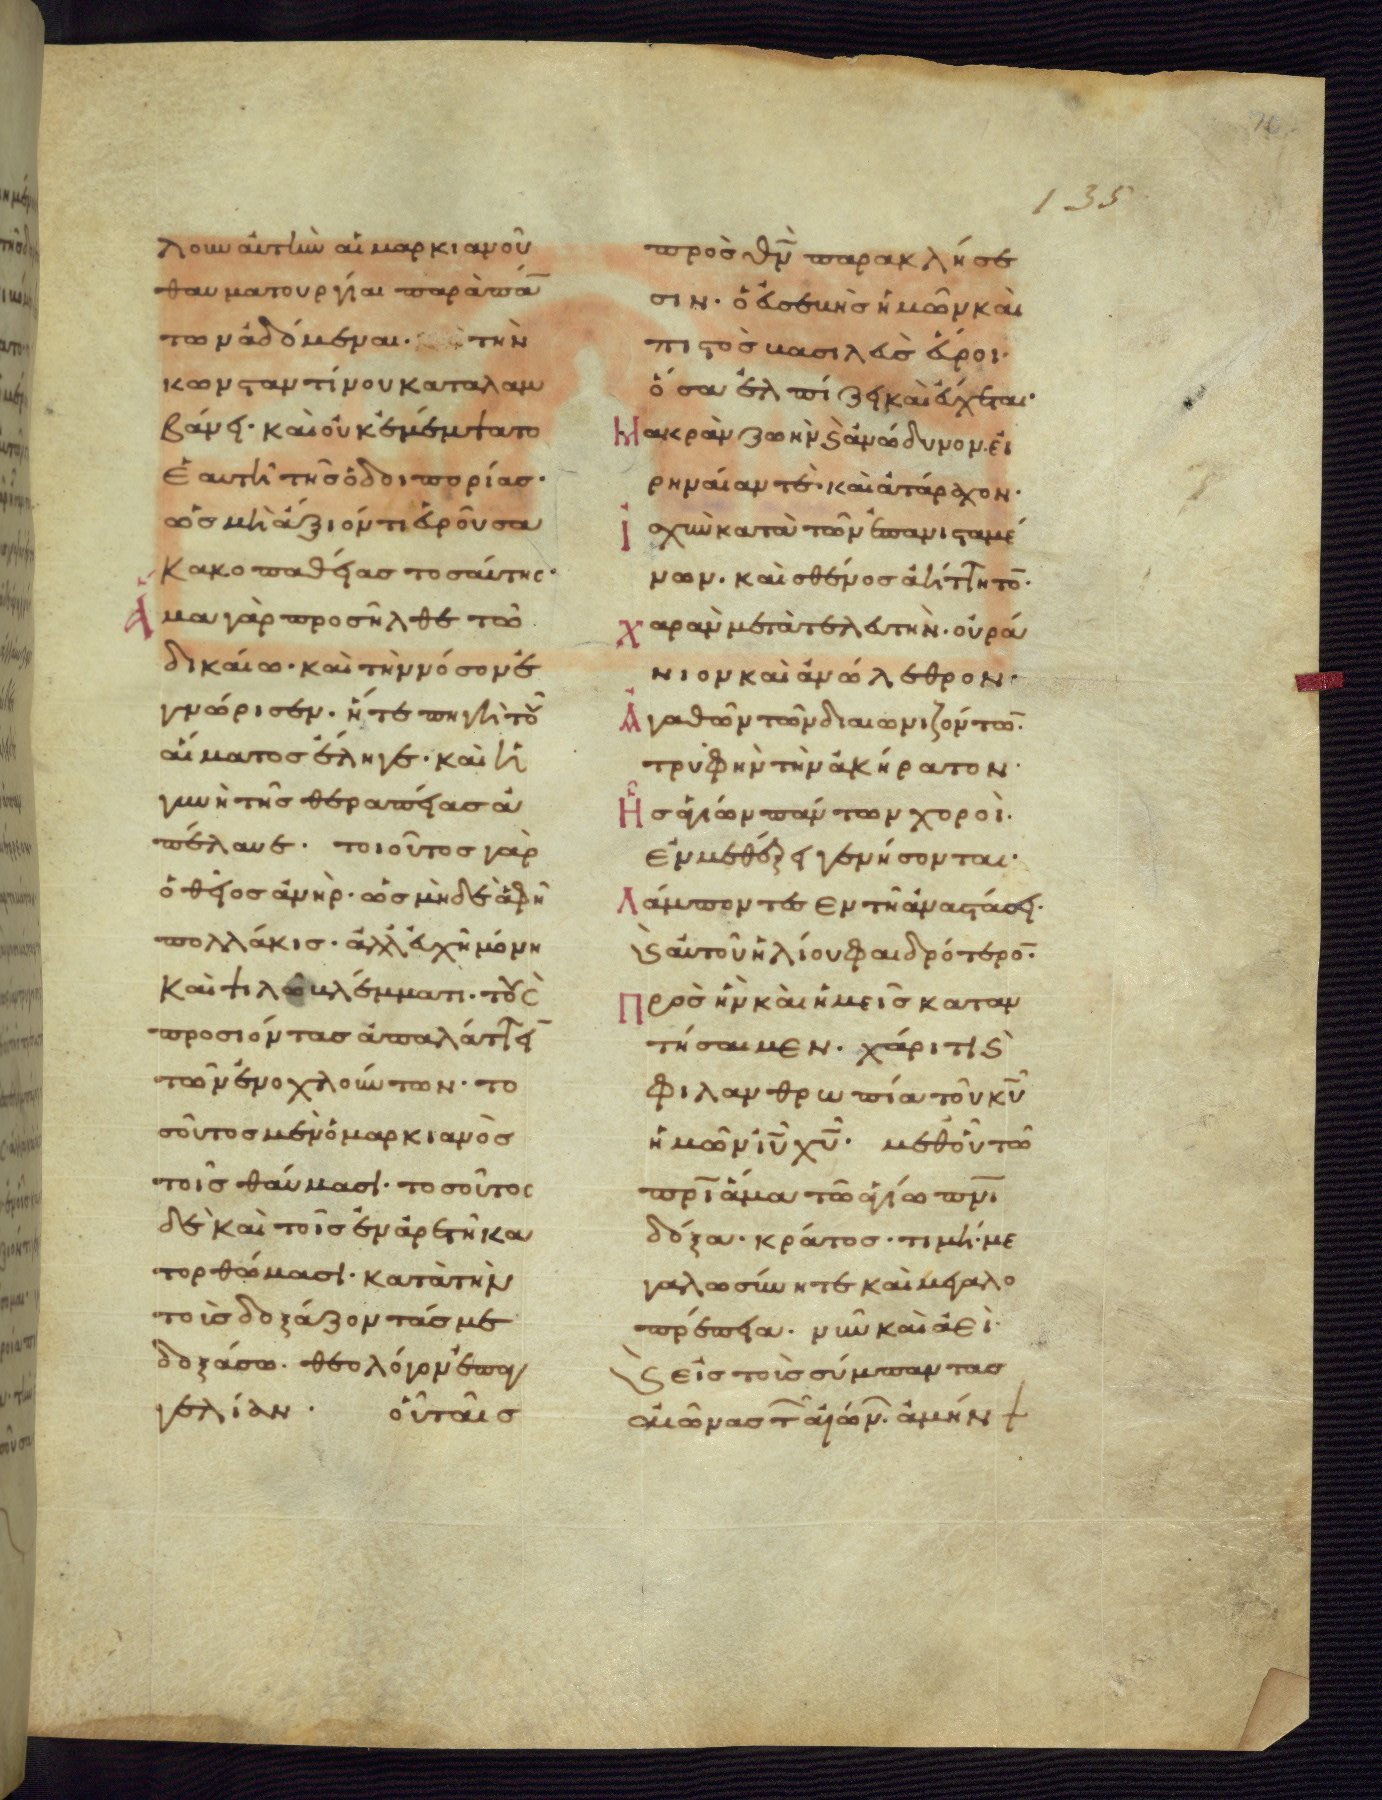 135
λουν αὐτὴν αἱ μαρκιανοῦ
θαυματουργίαι παρὰ πά
των ἀδόμεναι· τὴν
κωνσταντίνου καταλαμ
βάνει· καὶ οὐκ ἐμέμψατο
ἑαυτῆ τῆς ὁδοιπορίας·
ὡς μὴ ἄξιόν τι εὑροῦσα
κακοπαθείας τοσαύτης·
Ἅμα γὰρ προσῆλθε τῶ
δικαίω· καὶ τὴν νόσον ἐ
γνώρισεν· ἥ τε πηγὴ τοῦ
αἵματος ἔληγε· καὶ ἡ
γυνὴ τῆς θεραπείας ἀ
πέλαυε· τοιοῦτος γὰρ
ὁ θεῖος ἀνὴρ· ὡς μὴ δὲ ἀφῆ
πολλάκις· ἀλλ' εὐχῆ μόνη
καὶ ψιλῶ βλέμματι· τοὺς
προσιόντας ἀπαλάττειν
τῶν ἐνοχλούντων· το
σοῦτος μὲν ὁ μαρκιανὸς
τοῖς θαύμασι· τοσοῦτος
δὲ καὶ τοῖς ἐν ἀρετῆ κα
τορθώμασι· κατὰ τὴν
τοὺς δοξάζοντάς με
δοξάσω· θεολόγον ἐπαγ
γελίαν· οὗ ταῖς
πρὸς θν παρακλήσε
σιν· ὁ εὐσεβὴς ἡμῶν καὶ
πιστὸς βασιλεὺς εὕροι·
ὅσα ἐλπίζει καὶ εὔχεται·
Μακρὰν ζωὴν καὶ ἀνώδυνον· εἰ
ρηναίαν τὲ· καὶ ἀτάραχον·
Ἰσχὺν κατὰ τῶν ἐπανισταμέ
νων· καὶ σθένος ἀήττητον·
Χαρὰν μετὰ τελευτὴν· οὐρά
νιον καὶ ἀνώλεθρον·
Ἀγαθῶν τῶν διαιωνιζόντων·
τρυφὴν τὴν ἀκήρατον·
Ἧς ἁγίων πάντων χοροὶ·
ἐν μεθέξει γενήσονται·
Λάμποντες ἐν τῆ ἀναστάσει·
καὶ αὐτοῦ ἡλίου φαιδρότερον·
Πρὸς ἣν καὶ ἡμεῖς καταν
τήσαιμεν· χάριτι καὶ
φιλανθρωπία τοῦ κυ
ἡμῶν ιυ χυ· μεθ' οὗ τῶ
πρι ἅμα τῶ ἁγίω πνι
δόξα· κράτος· τιμὴ· με
γαλωσύνη τε καὶ μεγαλο
πρέπεια· νῦν καὶ ἀεὶ·
καὶ εἰς τοὺς σύμπαντας
αἰῶνας τῶν αἰώνων· ἀμήν +